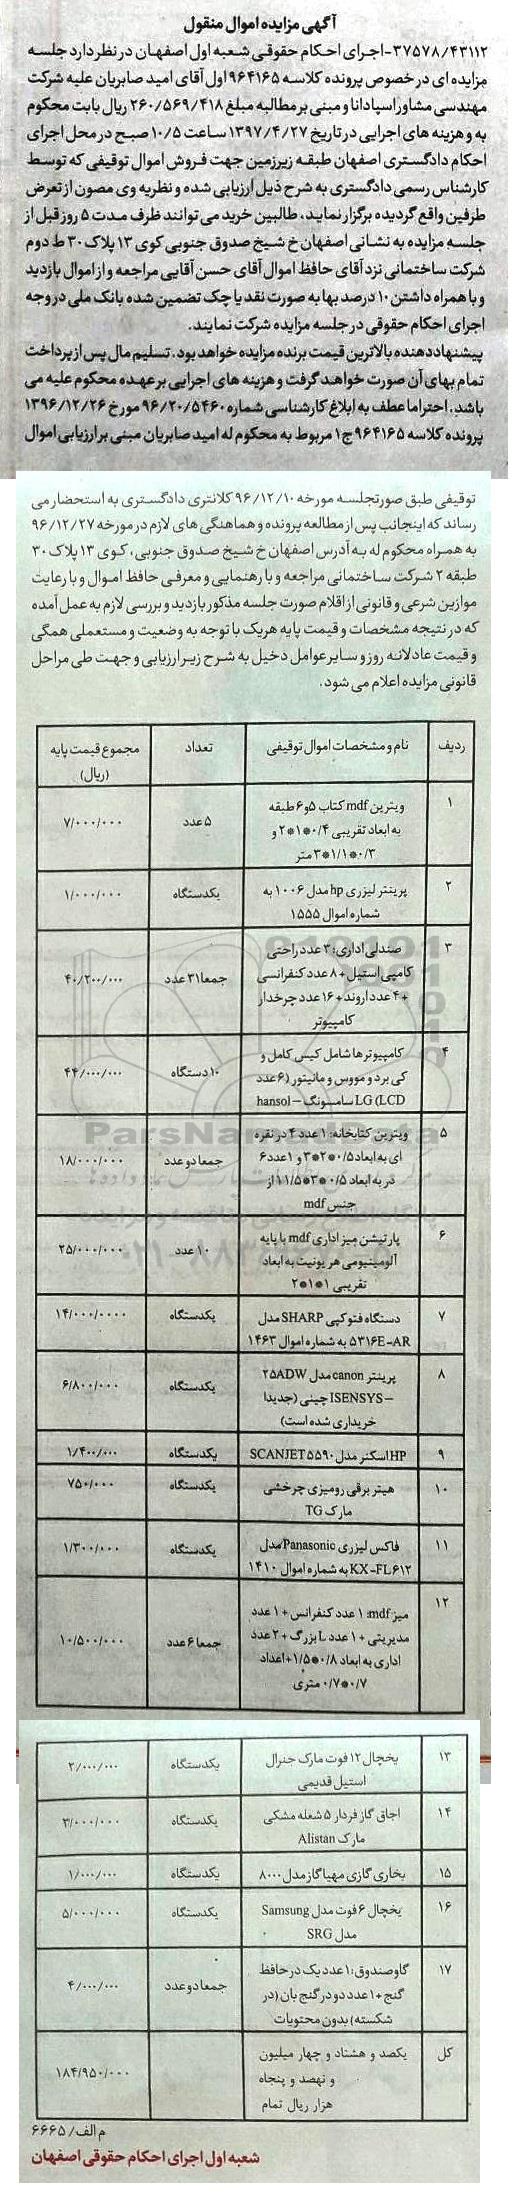 آگهی مزایده اموال منقول
۳۷۵۷۸/۴۳۱۱۲-اجرای احکام حقوقی شعبه اول اصفهان در نظر دارد جلسه
مزایده ای در خصوص پرونده کلاسه ۹۶۴۱۶۵ اول آقای امید صابریان علیه شرکت
مهندسی مشاور اسپادانا و مبنی بر مطالبه مبلغ ۲۶۰/۵۶۹/۴۱۸ ریال بابت محکوم
به و هزینه های اجرایی در تاریخ ۱۳۹۷/۴/۲۷ ساعت ۱۰/۵ صبح در محل اجرای
احکام دادگستری اصفهان طبقه زیرزمین جهت فروش اموال توقیفی که توسط
کارشناس رسمی دادگستری به شرح ذیل ارزیابی شده و نظریه وی مصون از تعرض
طرفین واقع گردیده برگزار نماید، طالبین خرید می توانند ظرف مدت ۵ روز قبل از
جلسه مزایده به نشانی اصفهان خ شیخ صدوق جنوبی کوی ۱۳ پلاک ۳۰ ط دوم
شرکت ساختمانی نزد آقای حافظ اموال آقای حسن آقایی مراجعه و از اموال بازدید
و با همراه داشتن ۱۰ درصد بها به صورت نقد یا چک تضمین شده بانک ملی در وجه
اجرای احکام حقوقی در جلسه مزایده شرکت نمایند.
پیشنهاد دهنده بالاترین قیمت برنده مزایده خواهد بود. تسلیم مال پس از پرداخت
تمام بهای آن صورت خواهد گرفت و هزینه های اجرایی بر عهده محکوم علیه می
باشد. احتراما عطف به ابلاغ کارشناسی شماره ۹۶/۲۰/۵۴۶۰ مورخ ۱۳۹۶/۱۲/۲۶
پرونده کلاسه ۹۶۴۱۶۵ ج۱ مربوط به محکوم له امید صابریان مبنی بر ارزیابی اموال
توقیفی طبق صورتجلسه مورخه ۹۶/۱۲/۱۰ کلانتری دادگستری به استحضار می
رساند که اینجانب پس از مطالعه پرونده و هماهنگی های لازم در مورخه ۹۶/۱۲/۲۷
به همراه محکوم له به آدرس اصفهان خ شیخ صدوق جنوبی، کوی ۱۳ پلاک ۳۰
طبقه ۲ شرکت ساختمانی مراجعه و با رهنمایی و معرفی حافظ اموال و با رعایت
موازین شرعی و قانونی از اقلام صورت جلسه مذکور بازدید و بررسی لازم به عمل آمده
که در نتیجه مشخصات و قیمت پایه هریک با توجه به وضعیت و مستعملی همگی
و قیمت عادلانه روز و سایر عوامل دخیل به شرح زیر ارزیابی و جهت طی مراحل
قانونی مزایده اعلام می شود.
ردیف نام و مشخصات اموال توقیفی تعداد مجموع قیمت پایه
(ریال)
۱ ویترین mdf کتاب ۵ و ۶ طبقه ۵ عدد ۷/۰۰۰/۰۰۰
به ابعاد تقریبی ۰/۴*۱*۲ و
۰/۳*۱/۱*۳ متر
۲ پرینتر لیزری hp مدل ۱۰۰۶ به یکدستگاه ۱/۰۰۰/۰۰۰
شماره اموال ۱۵۵۵
۳ صندلی اداری: ۳ عدد راحتی جمعا ۳۱ عدد ۴۰/۲۰۰/۰۰۰
کامپی استیل + ۸ عدد کنفرانسی
+ ۴ عدد اروند + ۱۶ عدد چرخدار
کامپیوتر
۴ کامپیوترها شامل کیس کامل و ۱۰ دستگاه ۴۴/۰۰۰/۰۰۰
کی برد و مووس و مانیتور (۶ عدد
LG (LCD سامسونگ – hansol
۵ ویترین کتابخانه: ۱ عدد ۴ در نقره جمعا دو عدد ۱۸/۰۰۰/۰۰۰
ای به ابعاد ۰/۵*۲*۳ و ۱ عدد ۶
در به ابعاد ۰/۵*۳*۱۱/۵ از
جنس mdf
۶ پارتیشن میز اداری mdf با پایه ۱۰ عدد ۲۵/۰۰۰/۰۰۰
آلومینیومی هر یونیت به ابعاد
تقریبی ۱*۱*۲
۷ دستگاه فتوکپی SHARP مدل یکدستگاه ۱۴/۰۰۰/۰۰۰۰
۵۳۱۶E-AR به شماره اموال ۱۴۶۳
۸ پرینتر canon مدل ۲۵ADW یکدستگاه ۶/۸۰۰/۰۰۰
–ISENSYS چینی (جدیدا
خریداری شده است)
۹ HP اسکنر مدل SCANJET ۵۵۹۰ یکدستگاه ۱/۴۰۰/۰۰۰
۱۰ هیتر برقی رومیزی چرخشی یکدستگاه ۷۵۰/۰۰۰
مارک TG
۱۱ فاکس لیزری Panasonic مدل یکدستگاه ۱/۳۰۰/۰۰۰
KX-FL۶۱۲ به شماره اموال ۱۴۱۰
۱۲ میز mdf: ۱ عدد کنفرانس + ۱ عدد جمعا ۶ عدد ۱۰/۵۰۰/۰۰۰
مدیریتی + ۱ عدد L بزرگ + ۲ عدد
اداری به ابعاد ۰/۸*۱/۵+۱عداد
۰/۷*۰/۷ متری
۱۳ یخچال ۱۲ فوت مارک جنرال یکدستگاه ۲/۰۰۰/۰۰۰
استیل قدیمی
۱۴ اجاق گاز فردار ۵ شعله مشکی یکدستگاه ۳/۰۰۰/۰۰۰
مارک Alistan
۱۵ بخاری گازی مهیا گاز مدل ۸۰۰۰ یکدستگاه ۱/۰۰۰/۰۰۰
۱۶ یخچال ۶ فوت مدل Samsung یکدستگاه ۵/۰۰۰/۰۰۰
مدل SRG
۱۷ گاوصندوق: ۱ عدد یک در حافظ جمعا دو عدد ۴/۰۰۰/۰۰۰
گنج + ۱ عدد دو در گنج بان (در
شکسته) بدون محتویات
کل یکصد و هشتاد و چهار میلیون ۱۸۴/۹۵۰/۰۰۰
و نهصد و پنجاه
هزار ریال تمام
م الف/ ۶۶۶۵
شعبه اول اجرای احکام حقوقی اصفهان